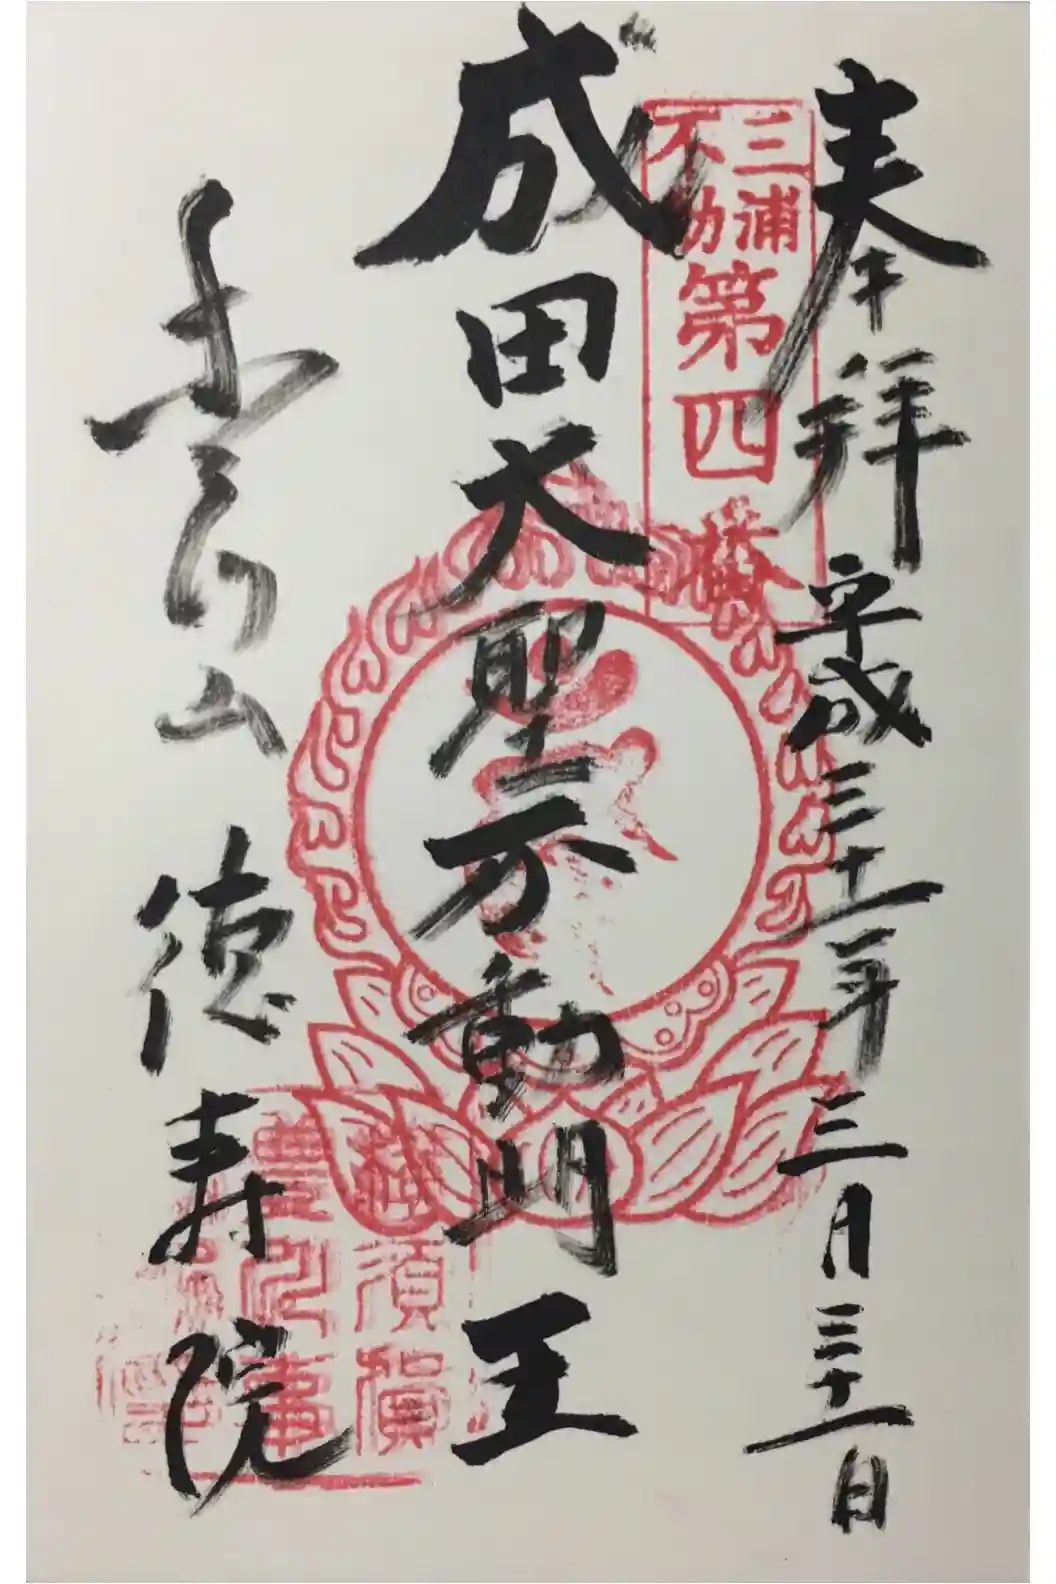 奉拝 平成三十一年三月三十一日
三浦
不動
第四番
成田大聖不動明王
徳寿院
横須賀